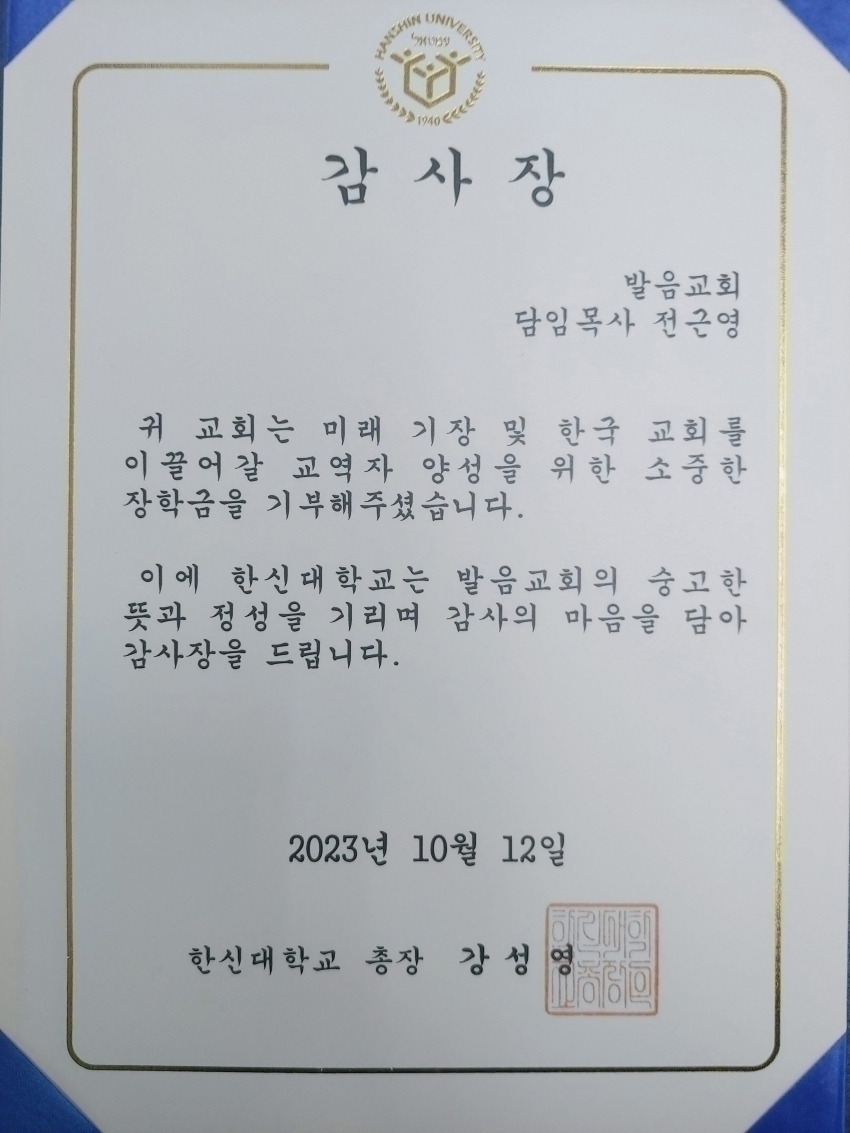 HANSHIN UNIVERSITY
1940
감 사 장
발음교회
담임목사 전근영
귀 교회는 미래 기장 및 한국 교회를
이끌어갈 교역자 양성을 위한 소중한
장학금을 기부해주셨습니다.
이에 한신대학교는 발음교회의 숭고한
뜻과 정성을 기리며 감사의 마음을 담아
감사장을 드립니다.
2023년 10월 12일
한신대학교 총장 강 성 영